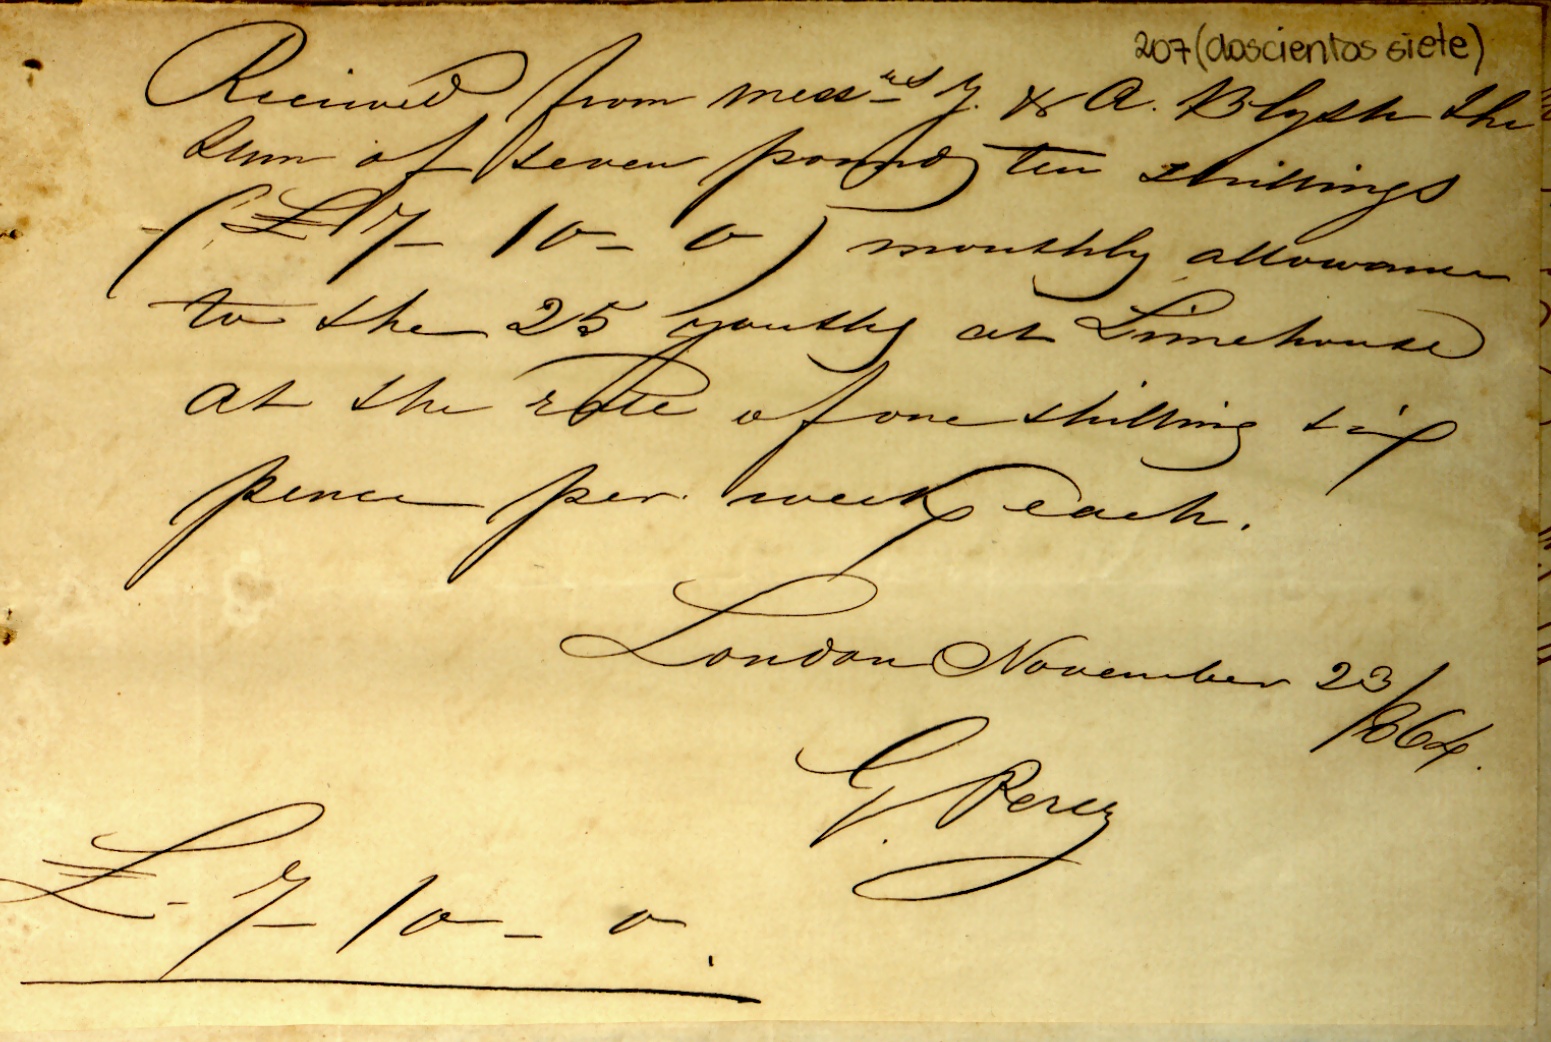 207 (doscientos siete)
Received from Mess.rs J. & A. Blyth the
sum of seven pounds ten shillings
(£7-10-0) monthly allowance
to the 25 youths at Limehouse
at the rate of one shilling six
pence per week each.
London November 23/864.
G. Perez
£-7-10-0.